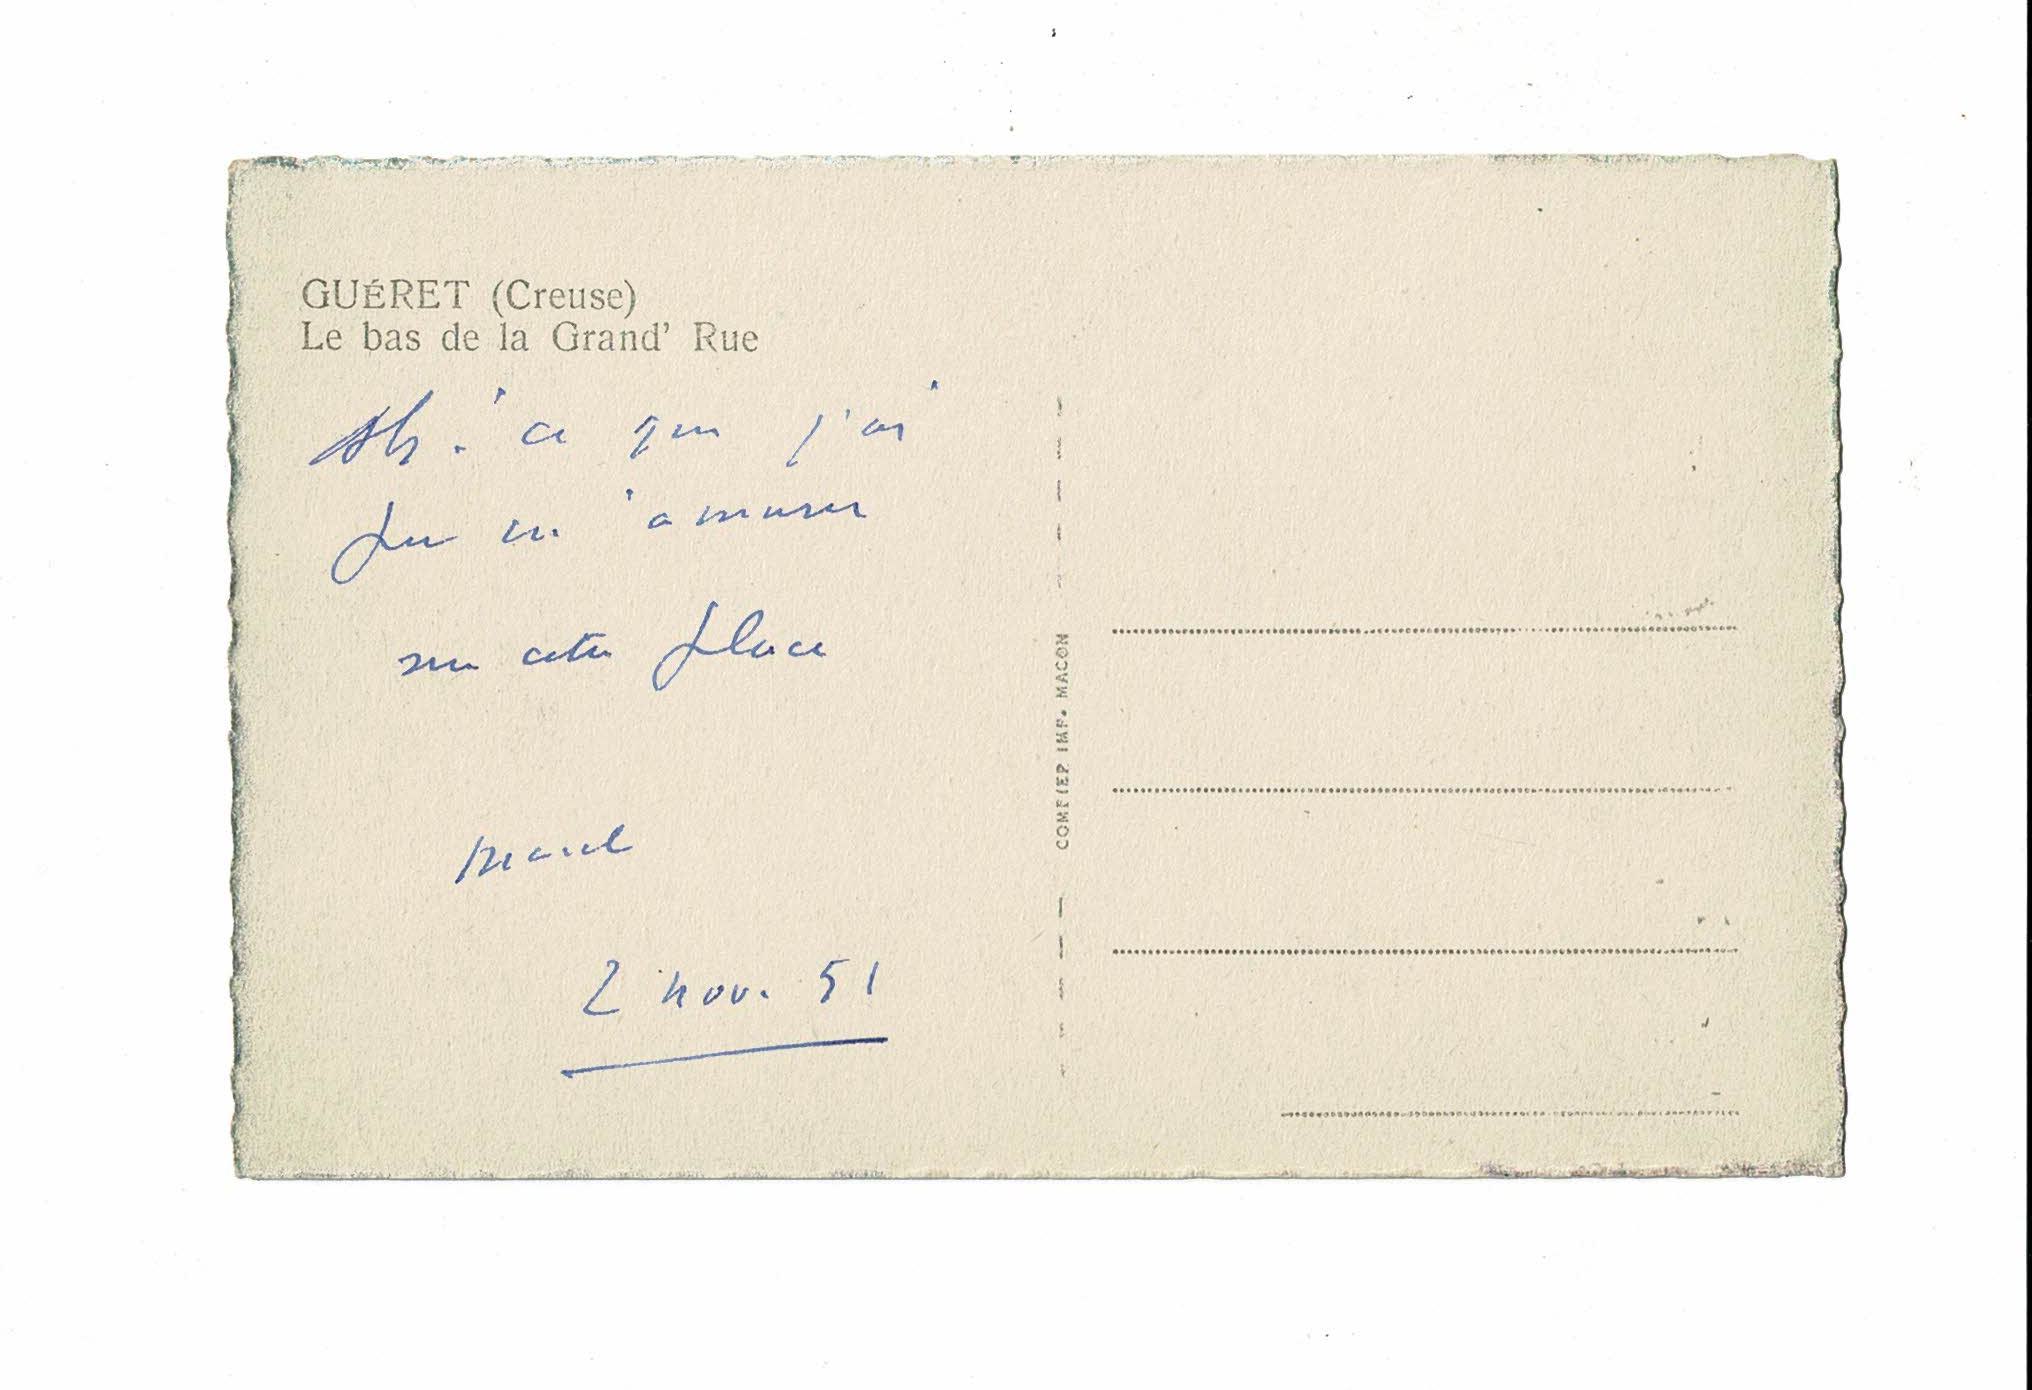 GUÉRET (Creuse)
Le bas de la Grand' Rue
Ah ! ce que j'ai
pu m'amuser
sur cette place
Marcel
2 nov. 51
COMPIER IMP. MACON